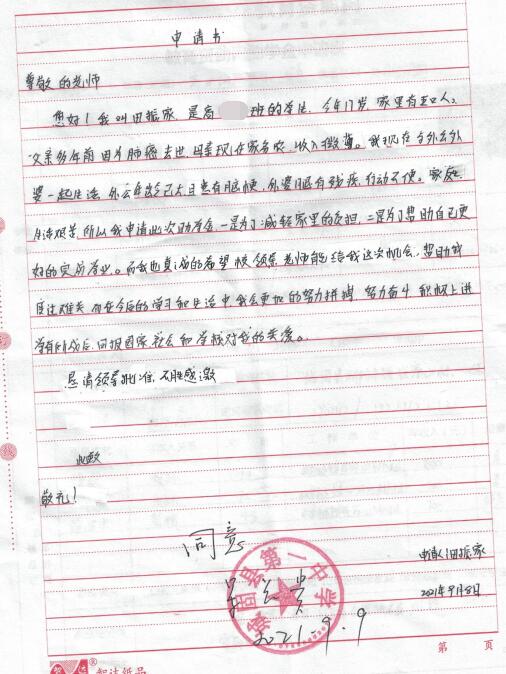 申请书
尊敬的老师
您好！我叫田振家，是高 班的学生，今年17岁，家里有五口人。
父亲多年前因为肺癌去世，母亲现在家务农，收入微薄。我现在与外公外
婆一起生活，外公年龄已大且患有脑梗，外婆腿有残疾，行动不便。家庭
生活艰苦，所以我申请此次助学金，一是为了减轻家里的负担，二是为了帮助自己更
好的完成学业。而我也真诚的希望校领导、老师能给我这次机会，帮助我
度过难关，而在今后的学习和生活中，我会更加的努力拼搏，努力奋斗，积极上进
学有所成后，回报国家、社会和学校对我的关爱。
恳请领导批准，不胜感激
此致
敬礼！
同意
城固县第一中学
申请人：田振家
2021年9月8日
2021.9.9
第 页